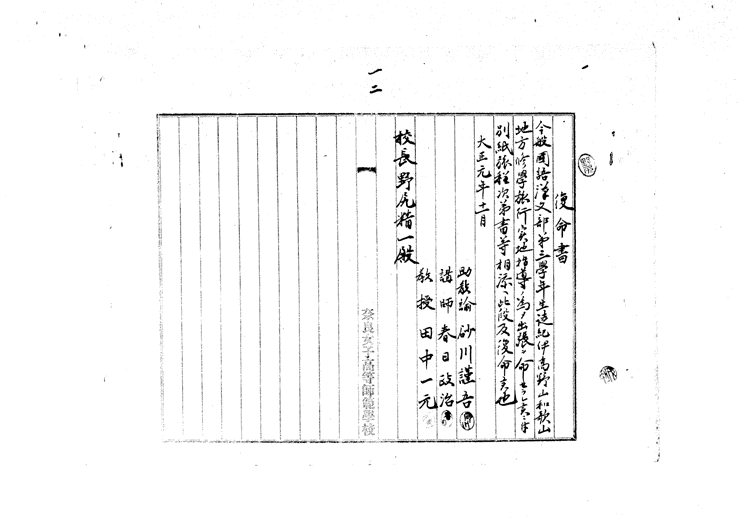 一二
復命書
今般國語漢文部第三學年生徒紀伊高野山和歌山
地方修學旅行実地指導ノ為メ出張ヲ命セラレ
別紙旅程次第書等相添ヘ此段及復命候也
大正元年十一月
助教諭 砂川謹吾
講師 春日政治
教授 田中一元
校長野尻精一殿
奈良女子高等師範學校